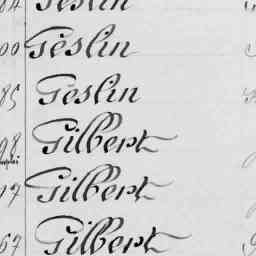 84 Geslin
00 Géslin
85 Geslin
98 Gilbert
17 Gilbert
67 Gilbert